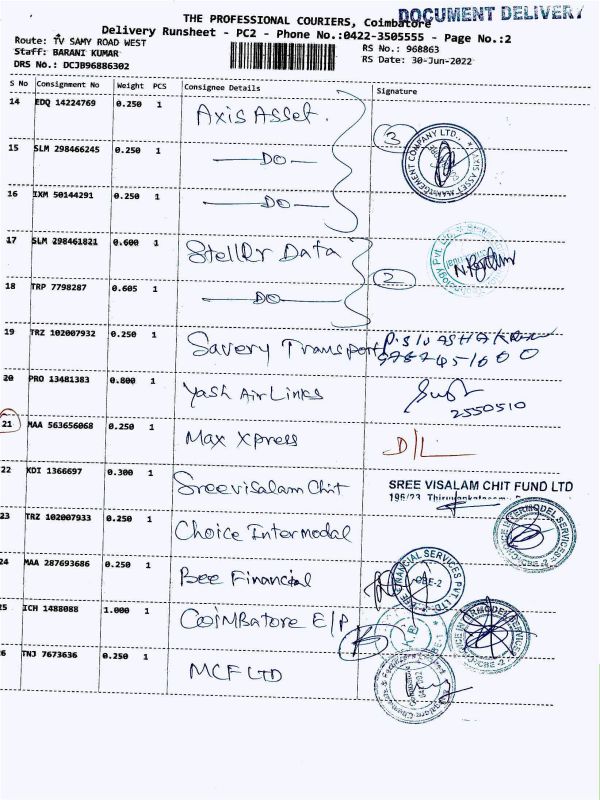 DOCUMENT DELIVERY
THE PROFESSIONAL COURIERS, Coimbatore
Delivery Runsheet - PC2 - Phone No.:0422-3505555 - Page No.:2
Route: TV SAMY ROAD WEST
RS No.: 968863
Staff: BARANI KUMAR
RS Date: 30-Jun-2022
DRS No.: DCJB96886302
S No Consignment No Weight PCS Consignee Details Signature
14 EDQ 14224769 0.250 1 Axis Asset.
3
AXIS ASSET MANAGEMENT COMPANY LTD.,
15 SLM 298466245 0.250 1 DO
16 IXM 50144291 0.250 1 DO
17 SLM 298461821 0.600 1 Steller Data
2
18 TRP 7798287 0.605 1 DO
19 TRZ 102007932 0.250 1 Savery Transport
20 PRO 13481383 0.800 1 Yash AirLinks
2550510
21 MAA 563656068 0.250 1 Max Xpress D/L
22 KDI 1366697 0.300 1 Sreevisalam Chit
SREE VISALAM CHIT FUND LTD
196/23,
23 TRZ 102007933 0.250 1 Choice Intermodal
CHOICE INTERMODEL SERVICES
CBE-2
24 MAA 287693686 0.250 1 Bee Financial
FINANCIAL SERVICES PVT. LTD.
CBE-2
25 ICH 1488088 1.000 1 Coimbatore E/P
CBE-2
26 TNJ 7673636 0.250 1 MCF LTD